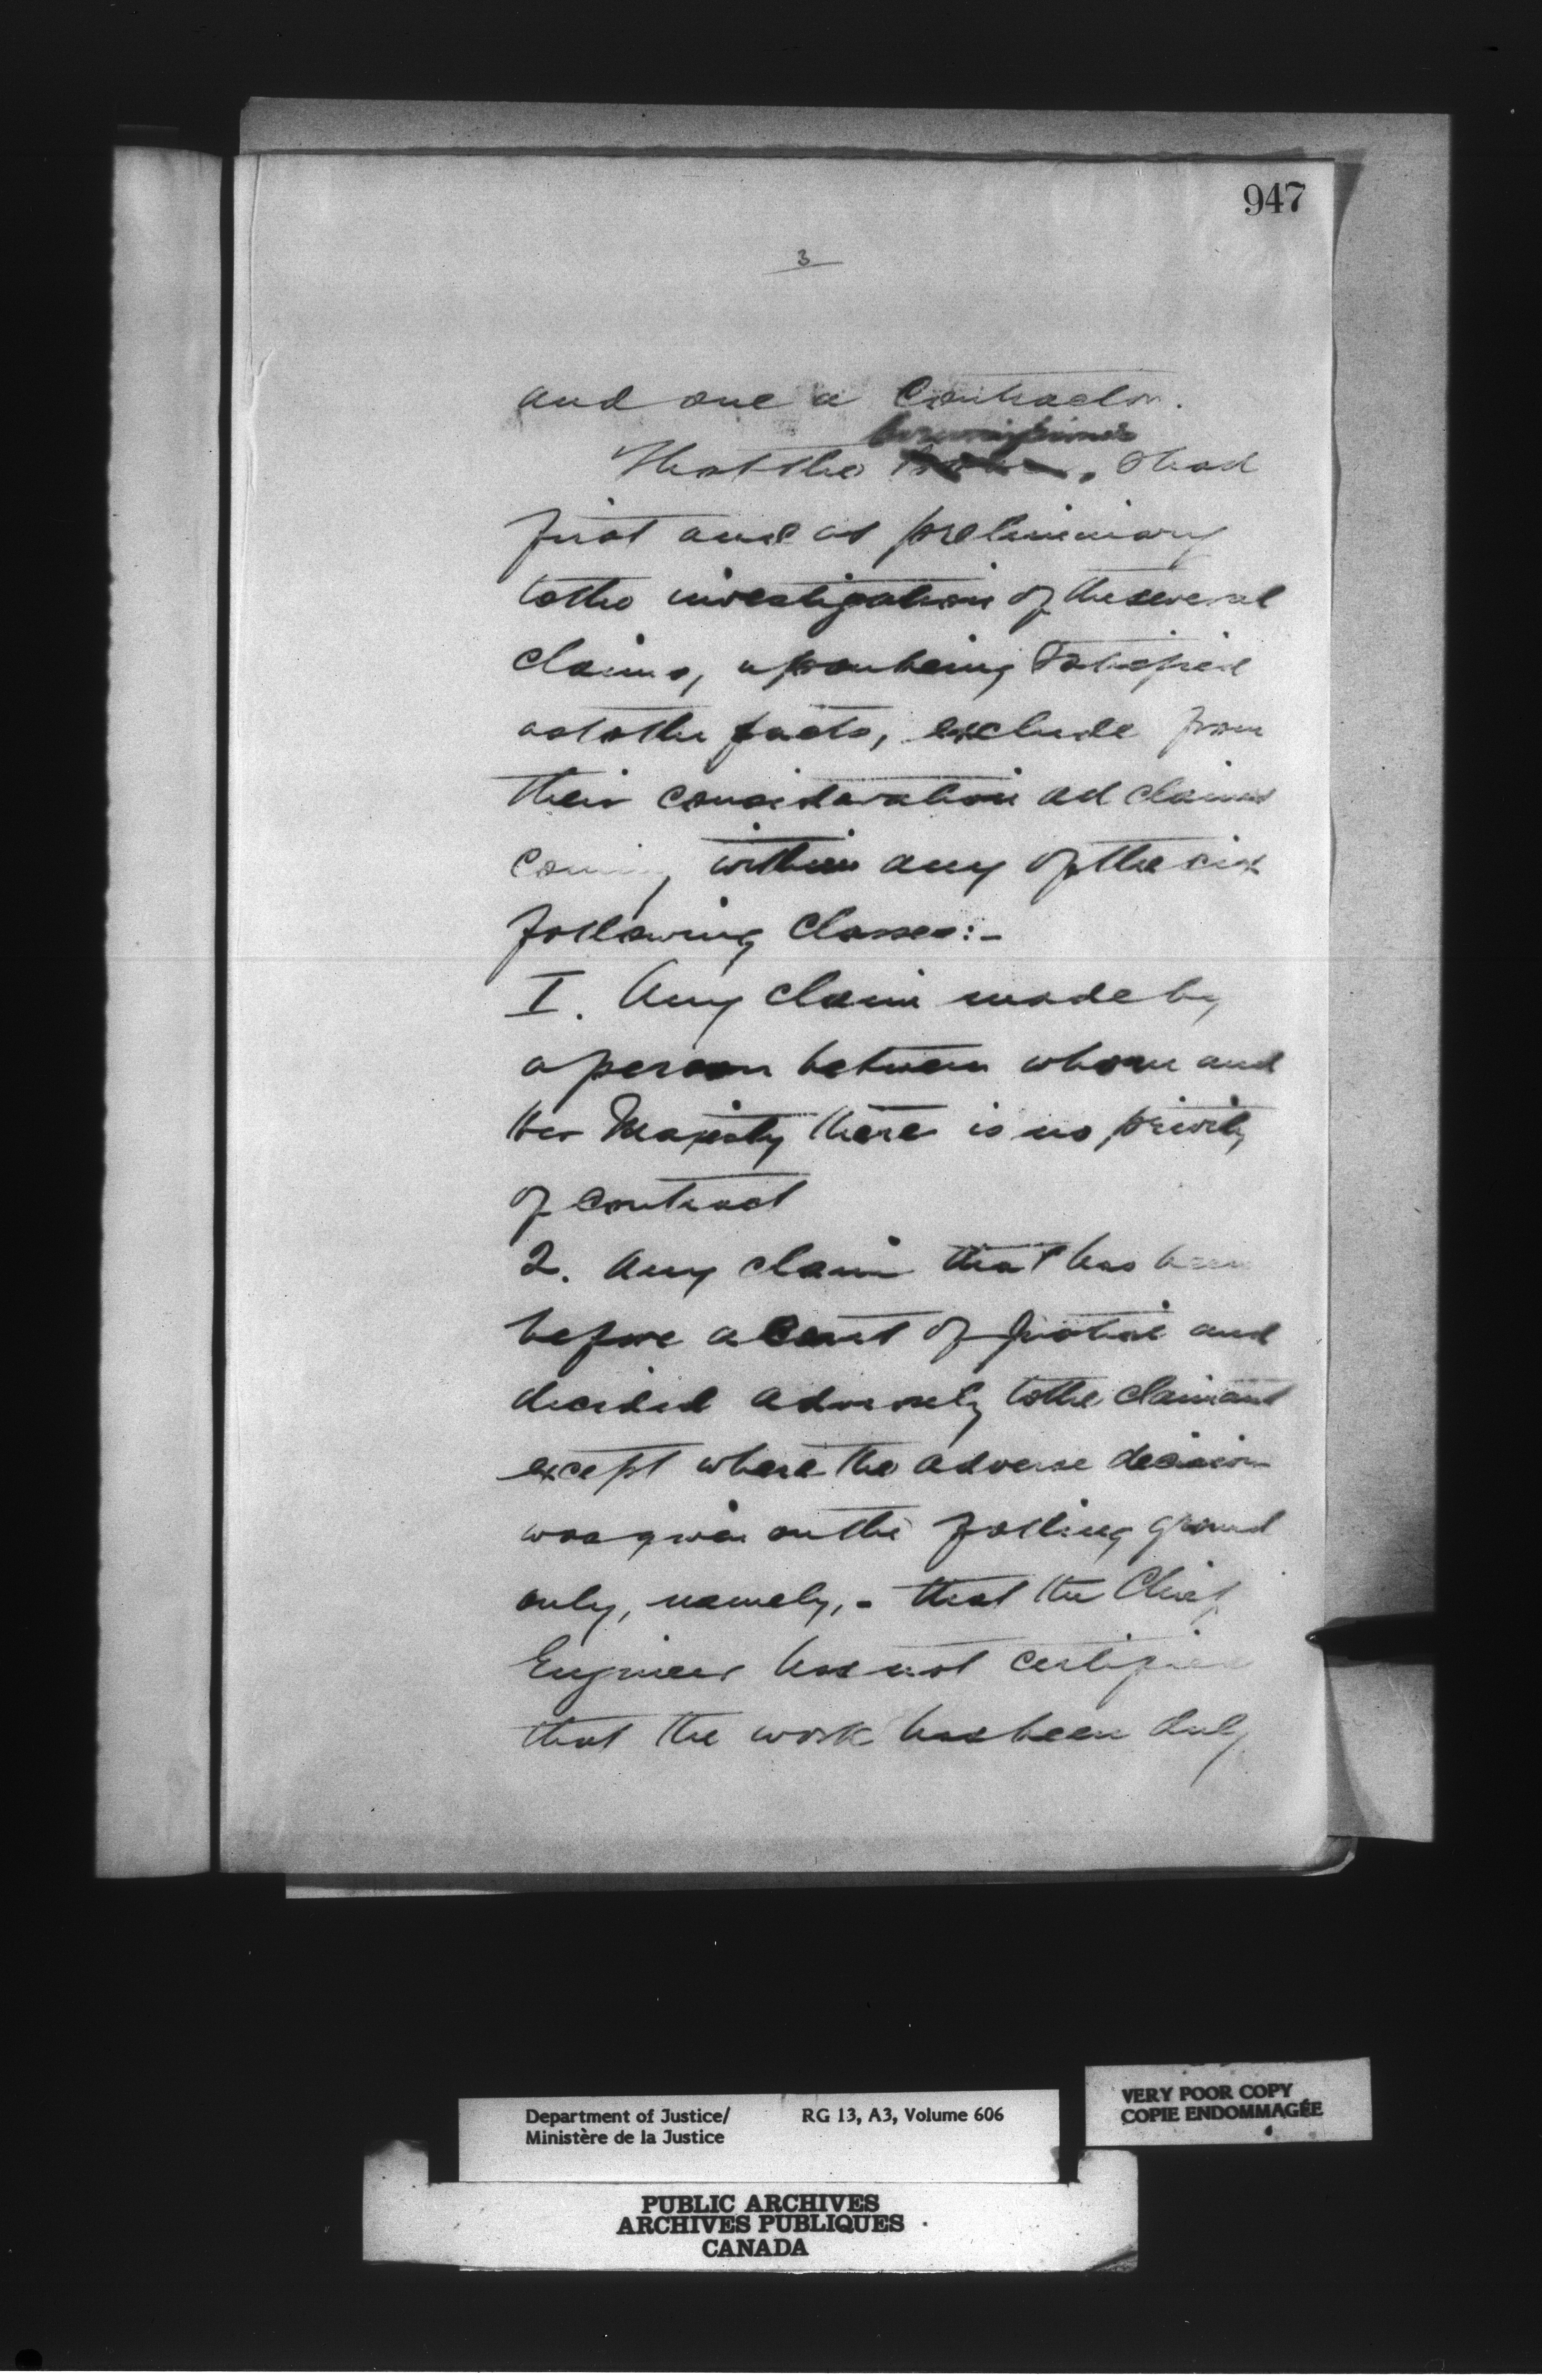 947
3
and one a Contractor.
Commissioners
That the shall
first and as preliminary
to the investigation of the several
claims, upon being satisfied
as to the facts, exclude from
their consideration all claims
coming within any of the six
following classes:-
I. Any claim made by
a person between whom and
Her Majesty there is no privity
of contract
2. Any claim that has been
before a Court of Justice and
decided adversely to the claimant
except where the adverse decision
was given on the folling ground
only, namely,- that the Chief
Engineer has not certified
that the work has been duly
Department of Justice/ RG 13, A3, Volume 606
Ministère de la Justice
VERY POOR COPY
COPIE ENDOMMAGÉE
PUBLIC ARCHIVES
ARCHIVES PUBLIQUES
CANADA